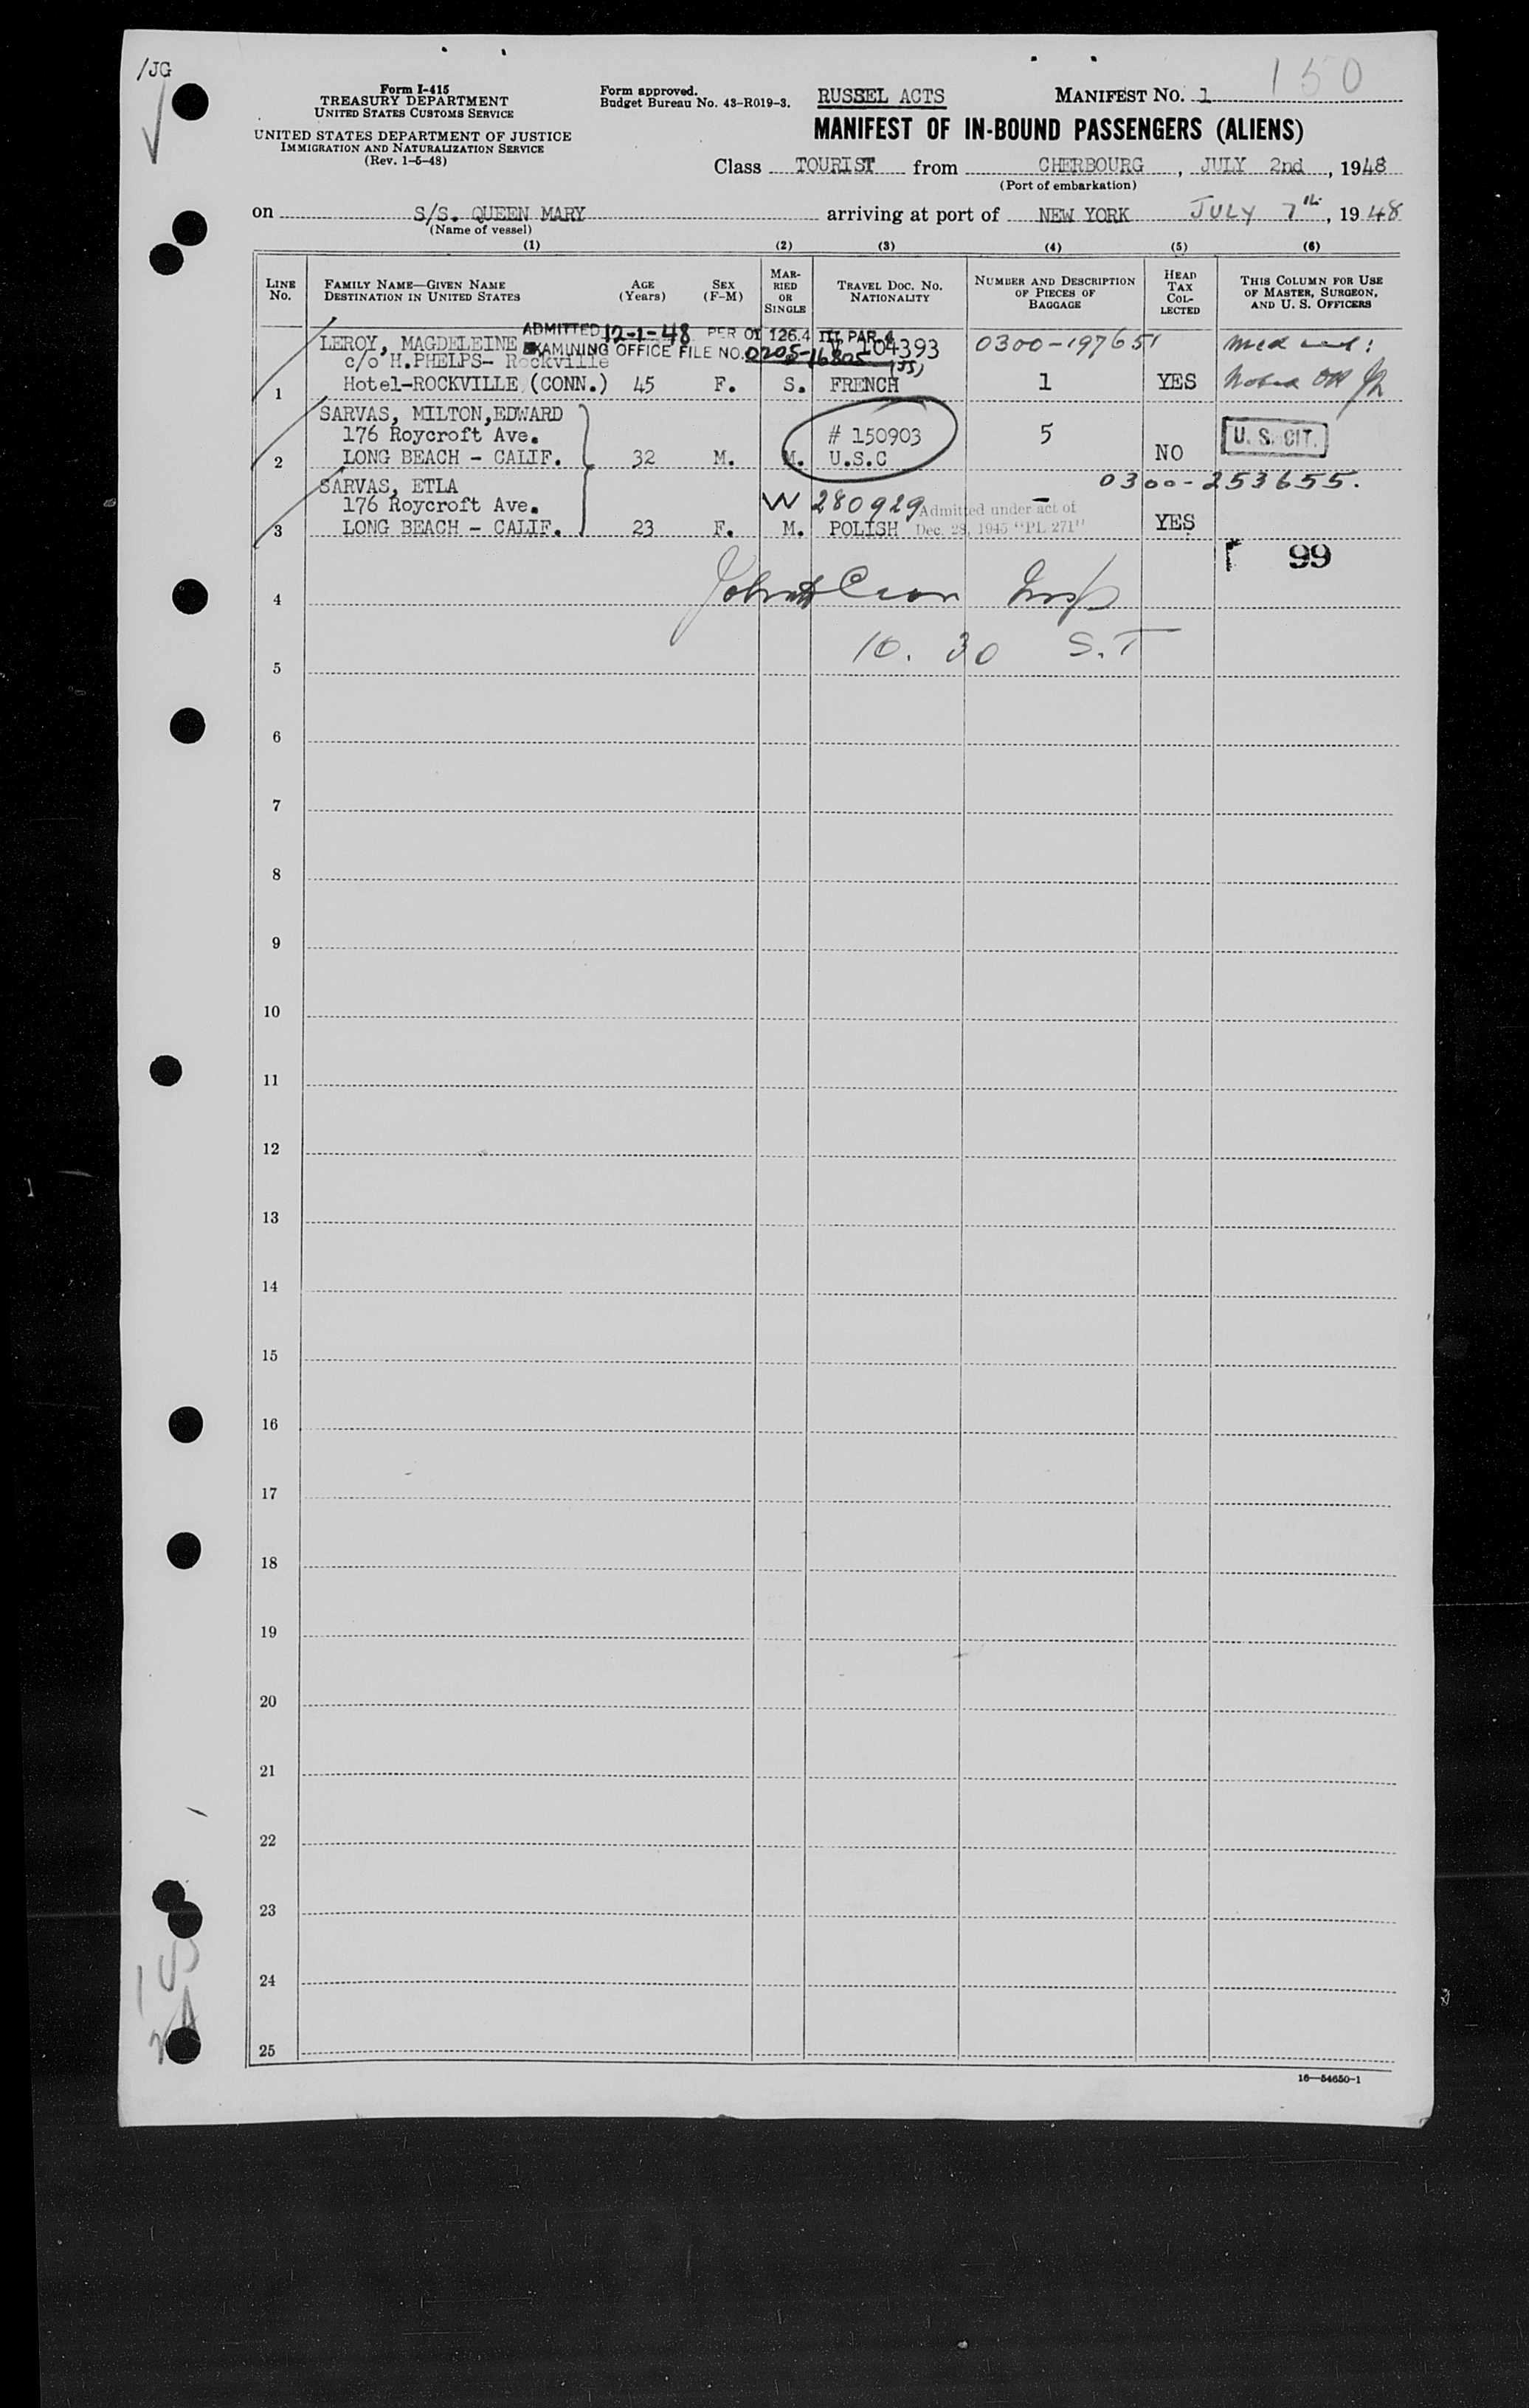 /JG
150
Form I-415
TREASURY DEPARTMENT
UNITED STATES CUSTOMS SERVICE
UNITED STATES DEPARTMENT OF JUSTICE
IMMIGRATION AND NATURALIZATION SERVICE
(Rev. 1-5-48)
Form approved.
Budget Bureau No. 43-R019-3.
RUSSEL ACTS
MANIFEST NO. 1
MANIFEST OF IN-BOUND PASSENGERS (ALIENS)
Class TOURIST from CHERBOURG, JULY 2nd, 1948
(Port of embarkation)
on S/S. QUEEN MARY arriving at port of NEW YORK JULY 7th, 1948
(Name of vessel)
(1) (2) (3) (4) (5) (6)
LINE No.
FAMILY NAME—GIVEN NAME
DESTINATION IN UNITED STATES
AGE (Years)
SEX (F-M)
MARRIED OR SINGLE
TRAVEL DOC. NO. NATIONALITY
NUMBER AND DESCRIPTION OF PIECES OF BAGGAGE
HEAD TAX COLLECTED
THIS COLUMN FOR USE OF MASTER, SURGEON, AND U. S. OFFICERS
ADMITTED 12-1-48 PER OI 126.4 III PAR 4
LEROY, MAGDELEINE EXAMINING OFFICE FILE NO. 0205-16805 V 104393 0300-197651
c/o H.PHELPS- Rockville
1 Hotel-ROCKVILLE (CONN.) 45 F. S. FRENCH 1 YES
SARVAS, MILTON,EDWARD
176 Roycroft Ave. # 150903 5 U. S. CIT.
2 LONG BEACH - CALIF. 32 M. M. U.S.C NO
SARVAS, ETLA 0300-253655.
176 Roycroft Ave. W 280929 - Admitted under act of
3 LONG BEACH - CALIF. 23 F. M. POLISH Dec. 28, 1945 "PL 271" YES
99
4
10.30 S.T
5
6
7
8
9
10
11
12
13
14
15
16
17
18
19
20
21
22
23
24
25
16—54650-1